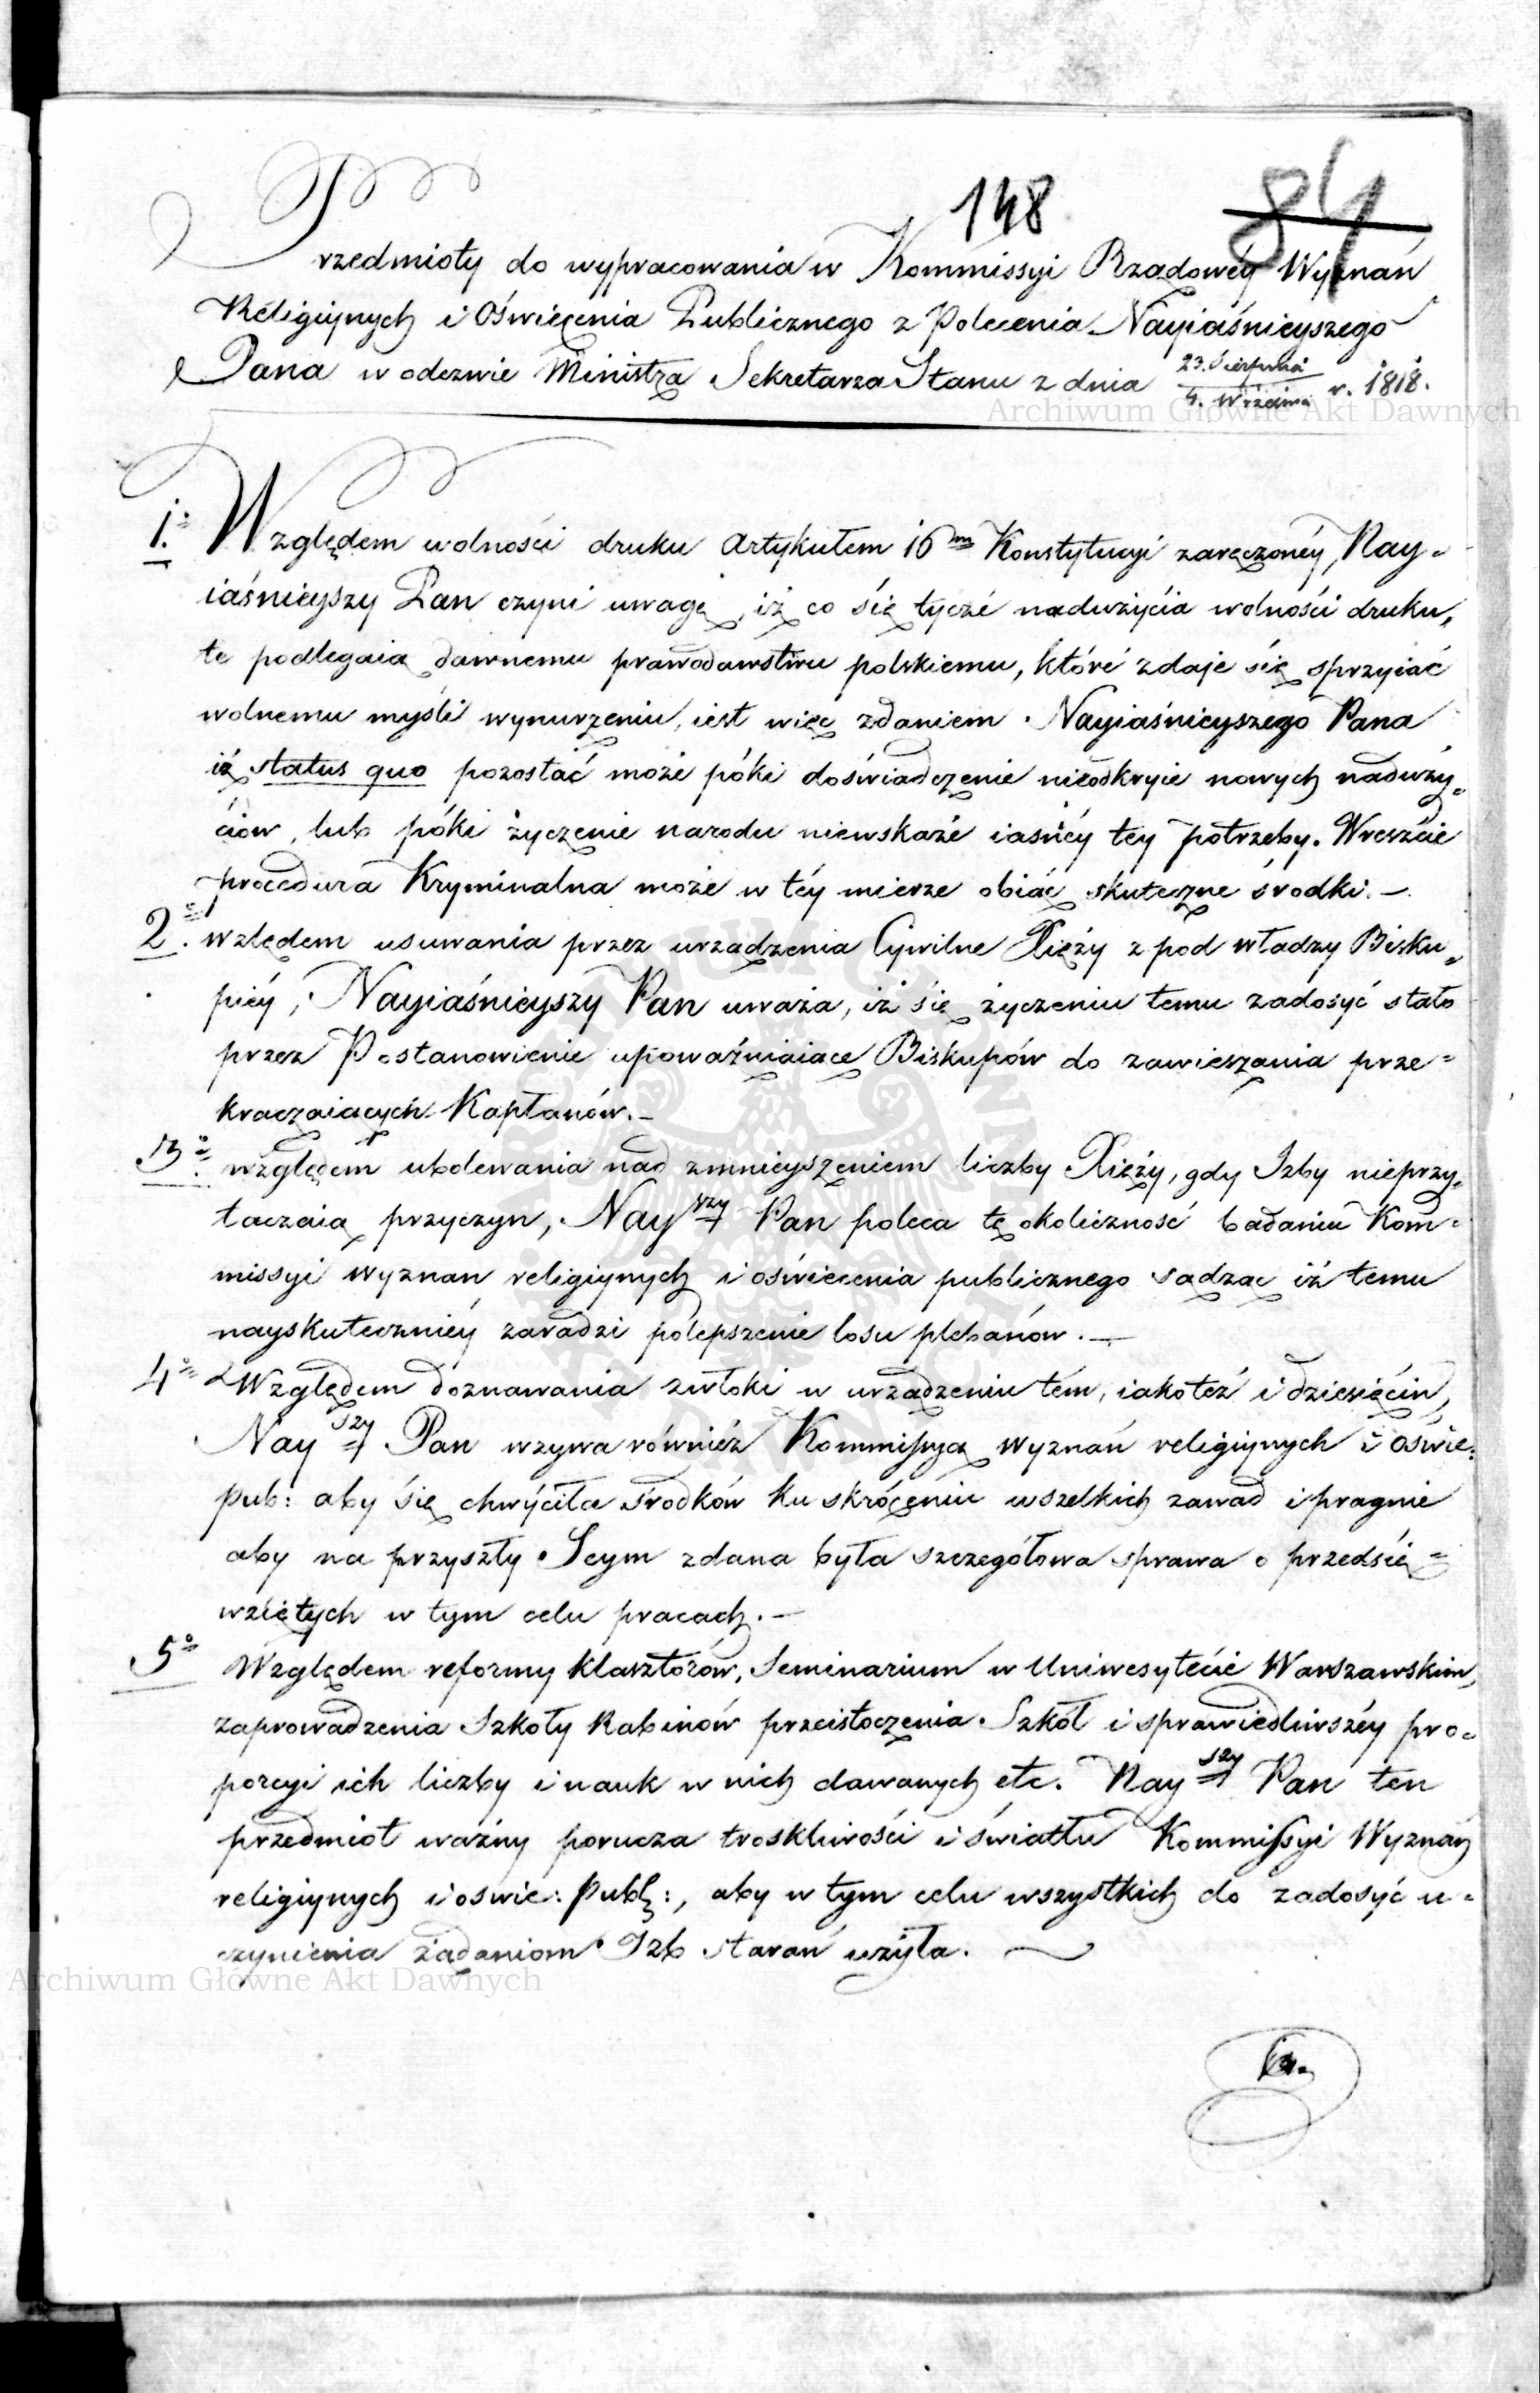 148
84
Przedmioty do wypracowania w Kommissyi Rządowéy Wyznań
Religiynych i Oświęcenia Publicznego z Polecenia Nayiaśnieyszego
Pana w odezwie Ministra Sekretarza Stanu z dnia 23. Sierpnia / 4. Września r. 1818.
Archiwum Główne Akt Dawnych
1.° Względem wolności druku Artykułem 16m Konstytucyi zaręczonéy, Nay-
iaśnieyszy Pan czyni uwagę, iż co się tycze nadużycia wolności druku,
te podlegaią dawnemu prawodawstwu polskiemu, które zdaje się sprzyiać
wolnemu myśli wynurzeniu, iest więc zdaniem Nayiaśnieyszego Pana
iż status quo pozostać może póki doświadczenie nieodkryie nowych naduży-
ciów, lub póki życzenie narodu niewskaże iaśnéy tey potrzeby. Wreszcie
procedura Kryminalna może w téy mierze obiąć skuteczne środki. –
2.° wzlędem usuwania przez urządzenia Cywilne Xięży z pod władzy Bisku-
piéy, Nayiaśnieyszy Pan uważa, iż się życzeniu temu zadosyć stało
przez Postanowienie upoważniaiące Biskupów do zawieszania prze-
kraczaiących Kapłanów. –
3.° względem ubolewania nad zmnieyszeniem liczby Xięży, gdy Izby nieprzy-
taczaią przyczyn, Nayszy Pan poleca tę okoliczność badaniu Kom-
missyi wyznań religiynych i oświecenia publicznego sądząc iż temu
nayskuteczniéy zaradzi polepszenie losu plebanów. –
4° Względem doznawania zwłoki w urządzeniu tém, iakoteż i dziesięcin,
Nayszy Pan wzywa również Kommissyą wyznań religiynych i oświe:
pub: aby się chwyciła środków ku skróceniu wszelkich zawad i pragnie
aby na przyszły Seym zdana była szczegółowa sprawa o przedsię-
wziętych w tym celu pracach. –
5° Względem reformy klasztorów, Seminarium w Uniwesytecie Warszawskim,
zaprowadzenia Szkoły Rabinów przeistoczenia Szkół i sprawiedliwszéy pro-
porcyi ich liczby i nauk w nich dawanych etc. Nayszy Pan ten
przedmiot ważny porucza troskliwości i światłu Kommissyi Wyznań
religiynych i oswie: Publ:, aby w tym celu wszystkich do zadosyć u-
czynienia żądaniom Izb starań użyła.
Archiwum Główne Akt Dawnych